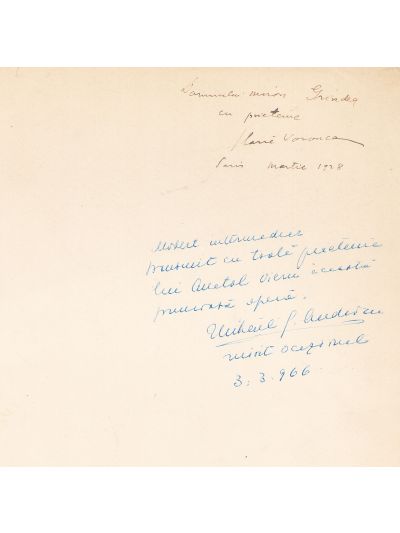 Domnului Miron Grindea
cu prietenie
Ilarie Voronca
Paris Martie 1928
Modest intermediez
transmit cu toată prietenia
lui Anatol Vieru această
prețioasă operă.
Mihail G.
3.3.966